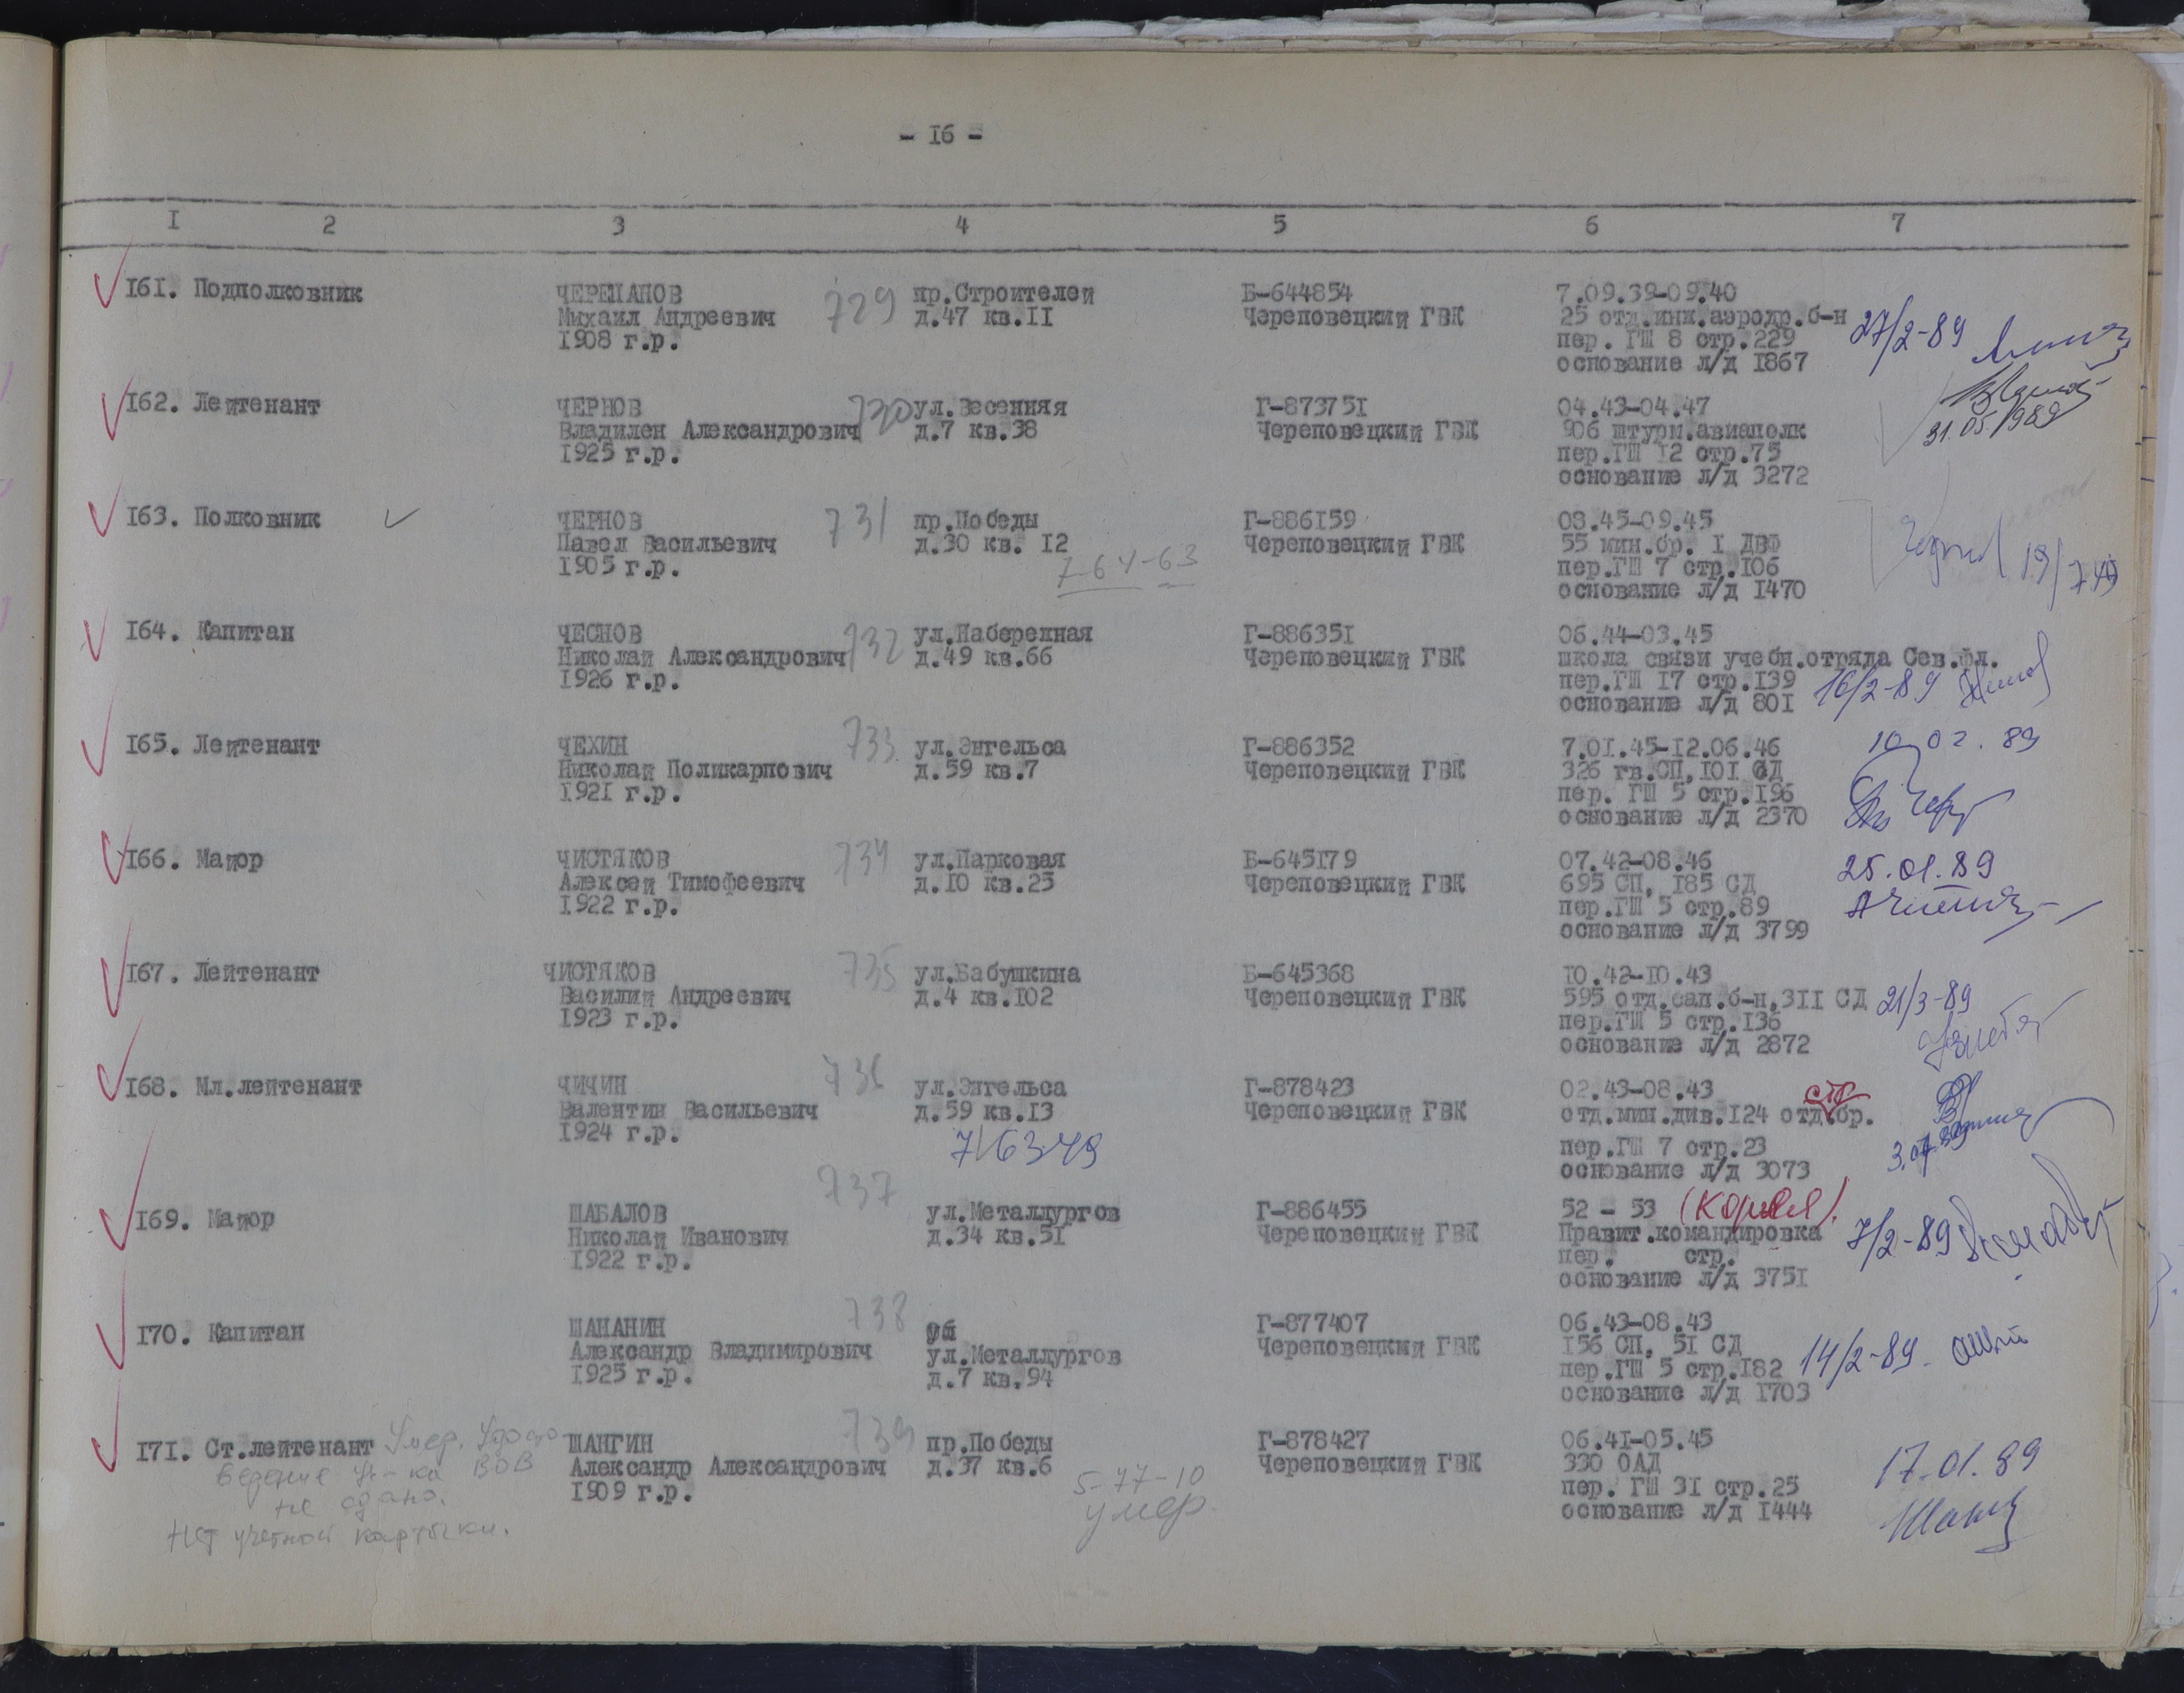 - 16 -
1 2 3 4 5 6 7
161. Подполковник ЧЕРЕПАНОВ 729 пр.Строителей Б-644854 7.09.39-09.40
Михаил Андреевич д.47 кв.11 Череповецкий ГВК 25 отд.инж.аэродр.б-н 27/2-89
1908 г.р. пер. ГШ 8 стр.229
основание л/д 1867
162. Лейтенант ЧЕРНОВ 730 ул.Весенняя Г-873751 04.43-04.47
Владилен Александрович д.7 кв.38 Череповецкий ГВК 906 штурм.авиаполк 31.05.1989
1925 г.р. пер.ГШ 12 стр.75
основание л/д 3272
163. Полковник ЧЕРНОВ 731 пр.Победы Г-886159 08.45-09.45
Павел Васильевич д.30 кв. 12 Череповецкий ГВК 55 мин.бр. 1 ДВФ
1905 г.р. 7-64-63 пер.ГШ 7 стр.106
основание л/д 1470
164. Капитан ЧЕСНОВ 732 ул.Набережная Г-886351 06.44-03.45
Николай Александрович д.49 кв.66 Череповецкий ГВК школа связи учебн.отряда Сев.фл.
1926 г.р. пер.ГШ 17 стр.139 16/2-89
основание л/д 801
165. Лейтенант ЧЕХИН 733 ул.Энгельса Г-886352 7.01.45-12.06.46 10.02.89
Николай Поликарпович д.59 кв.7 Череповецкий ГВК 326 гв.СП,101 СД
1921 г.р. пер. ГШ 5 стр.196
основание л/д 2370
166. Майор ЧИСТЯКОВ 734 ул.Парковая Б-645179 07.42-08.46 25.01.89
Алексей Тимофеевич д.10 кв.25 Череповецкий ГВК 695 СП, 185 СД
1922 г.р. пер.ГШ 5 стр.89
основание л/д 3799
167. Лейтенант ЧИСТЯКОВ 735 ул.Бабушкина Б-645368 10.42-10.43
Василий Андреевич д.4 кв.102 Череповецкий ГВК 595 отд.сап.б-н,311 СД 21/3-89
1923 г.р. пер.ГШ 5 стр.136
основание л/д 2872
168. Мл.лейтенант ЧИЧИН 736 ул.Энгельса Г-878423 02.43-08.43 стр
Валентин Васильевич д.59 кв.13 Череповецкий ГВК отд.мин.див.124 отд.бр.
1924 г.р. 7-63-49 пер.ГШ 7 стр.23
основание л/д 3073
169. Майор ШАБАЛОВ 737 ул.Металлургов Г-886455 52 - 53 (Корея).
Николай Иванович д.34 кв.51 Череповецкий ГВК Правит.командировка 7/2-89
1922 г.р. пер. стр.
основание л/д 3751
170. Капитан ШАНАНИН 738 Г-877407 06.43-08.43
Александр Владимирович ул.Металлургов Череповецкий ГВК 156 СП, 51 СД
1925 г.р. д.7 кв.94 пер.ГШ 5 стр.182 14/2-89
основание л/д 1703
171. Ст.лейтенант Умер. Удосто- ШАНГИН 739 пр.Победы Г-878427 06.41-05.45
верение уч-ка ВОВ Александр Александрович д.37 кв.6 Череповецкий ГВК 330 ОАД 17.01.89
не сдано. 1909 г.р. 5-77-10 пер. ГШ 31 стр.25
Нет учетной карточки. умер. основание л/д 1444